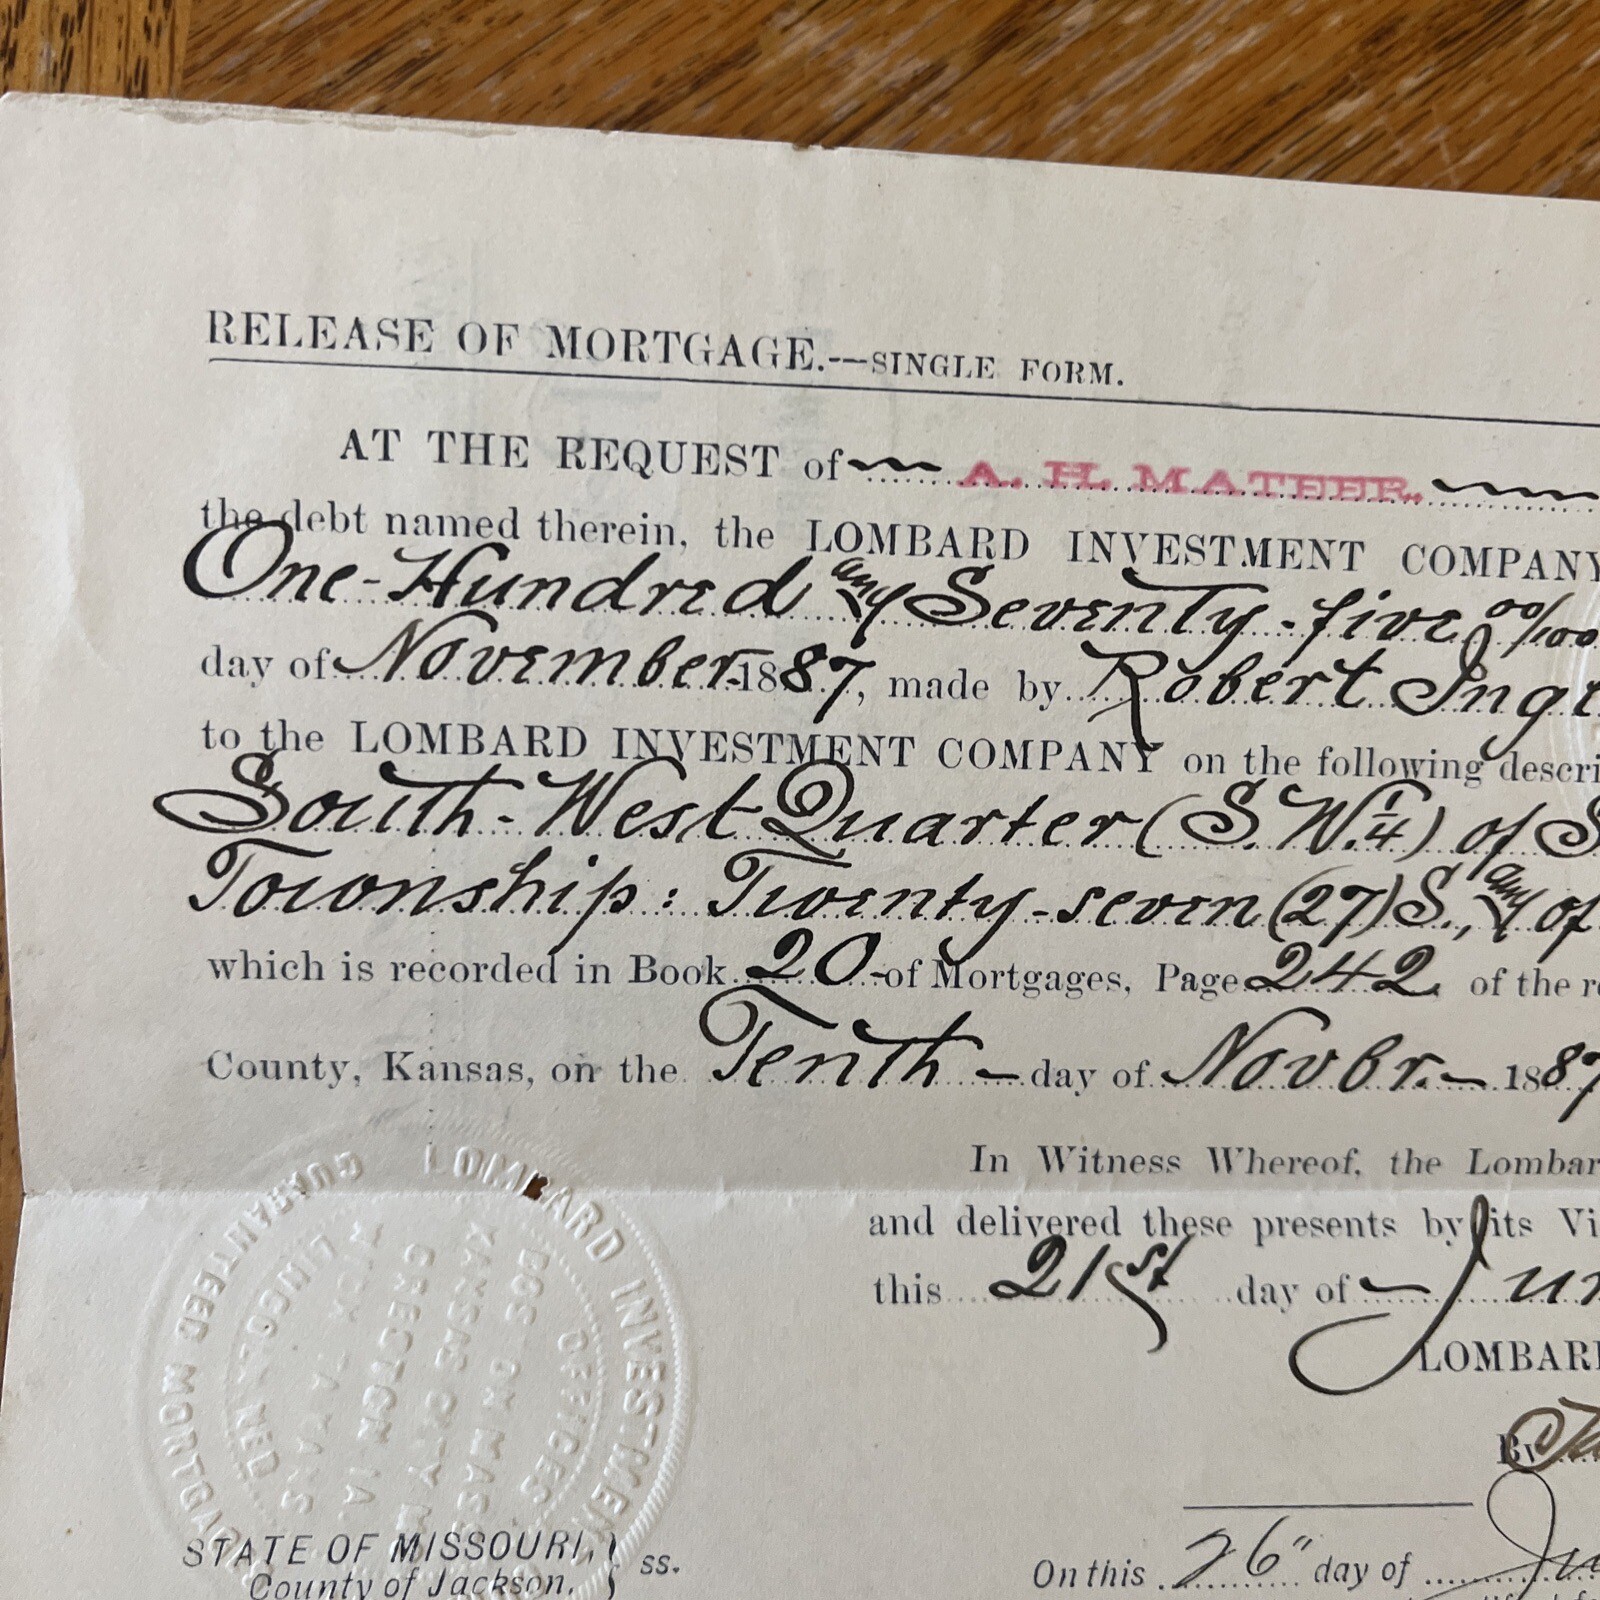 RELEASE OF MORTGAGE.—SINGLE FORM.
AT THE REQUEST of A. H. MATEER.
the debt named therein, the LOMBARD INVESTMENT COMPANY
One-Hundred and Seventy-five 00/100
day of November 1887, made by Robert Ing
to the LOMBARD INVESTMENT COMPANY on the following descri
South-West Quarter (S.W.¼) of S
Township: Twenty-seven (27) S., and of
which is recorded in Book 20 of Mortgages, Page 242 of the re
County, Kansas, on the Tenth day of Novbr. 1887
In Witness Whereof, the Lombar
and delivered these presents by its Vi
this 21st day of Jun
LOMBARD
By
LOMBARD INVESTMENT
GUARANTEED MORTGAGE
OFFICES
BOSTON MASS
KANSAS CITY
CRESTON IA.
LINCOLN NEB
STATE OF MISSOURI,
County of Jackson, } ss.
On this 26" day of Ju